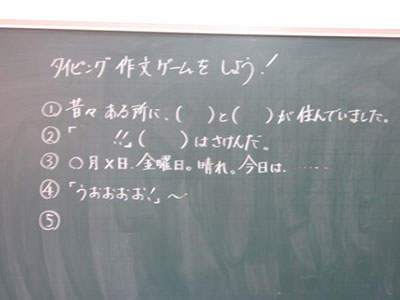 タイピング作文ゲームをしよう!
①昔々ある所に、( )と( )が住んでいました。
②「 !!」( )はさけんだ。
③○月×日、金曜日。晴れ。今日は、……
④「うおおおお!」~
⑤